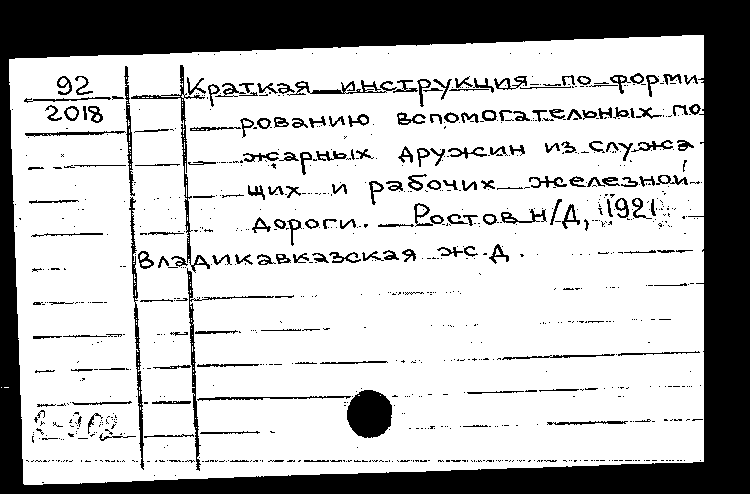 92
2018
Краткая инструкция по форми-
рованию вспомогательных по-
жарных дружин из служа-
щих и рабочих железной
дороги. — Ростов н/Д, 1921.
Владикавказская ж.д.
2-902